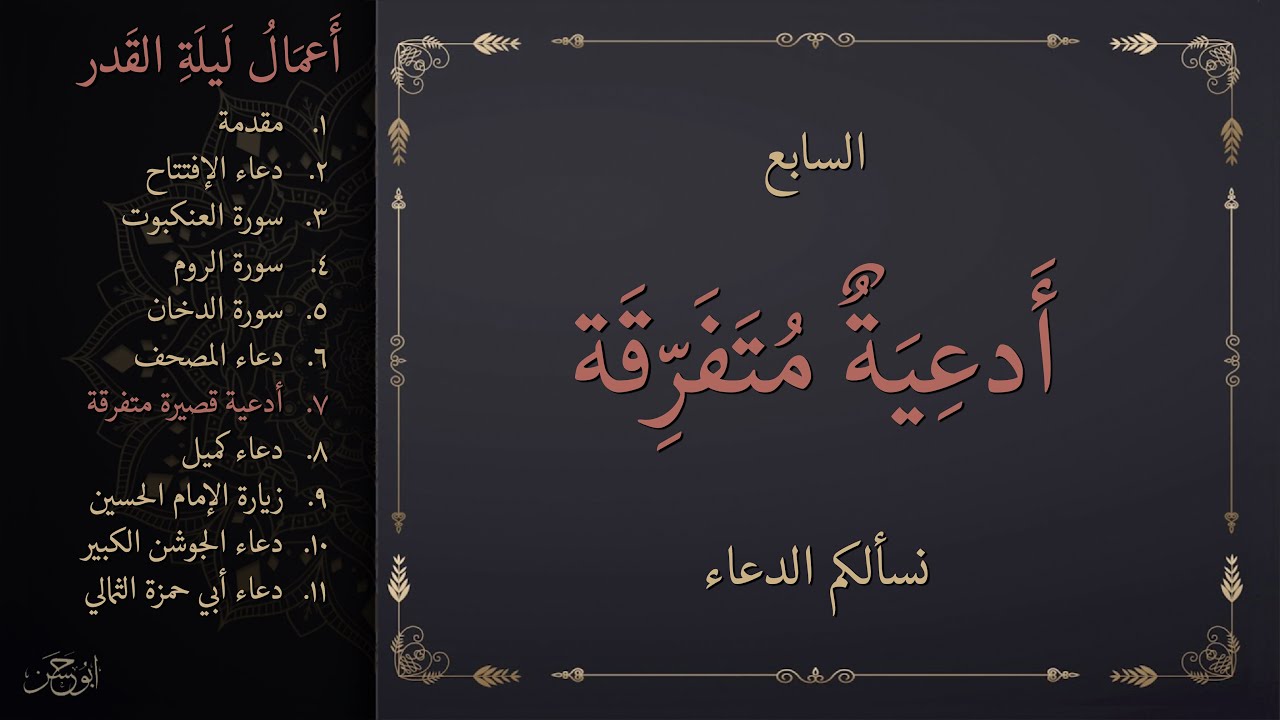 أَعمَالُ لَيلَةِ القَدر
١. مقدمة
٢. دعاء الإفتتاح
٣. سورة العنكبوت
٤. سورة الروم
٥. سورة الدخان
٦. دعاء المصحف
٧. أدعية قصيرة متفرقة
٨. دعاء كميل
٩. زيارة الإمام الحسين
١٠. دعاء الجوشن الكبير
١١. دعاء أبي حمزة الثمالي
ابو حسن
السابع
أَدعِيَةٌ مُتَفَرِّقَة
نسألكم الدعاء